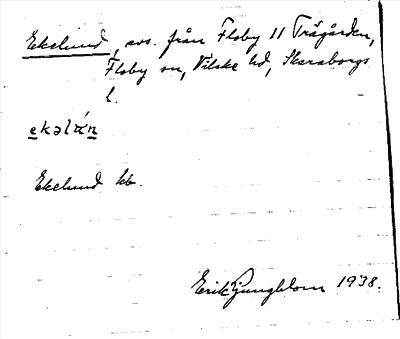 Ekelund, avs. från Floby 11 Trågården,
Floby sn, Vilske hd, Skaraborgs
l.
Ekelund kb.
Erik Ljungblom 1938.